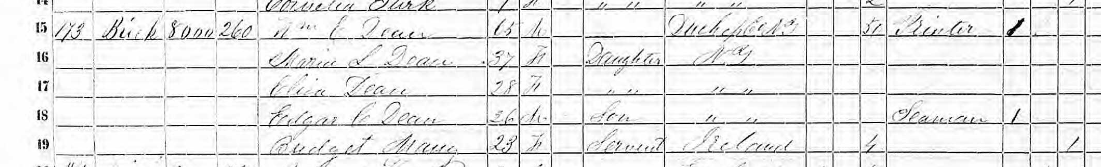 14 Cornelia Clark 1 F " " " " 2 1
15 173 Brick 8000 260 Wm E Dean 65 M Duchess Co NY 51 Printer 1
16 Maria L Dean 37 F Daughter NY
17 Eliza Dean 28 F " " " "
18 Edgar C Dean 26 M Son " " Seaman 1
19 Bridget 23 F Servent Ireland 4 1